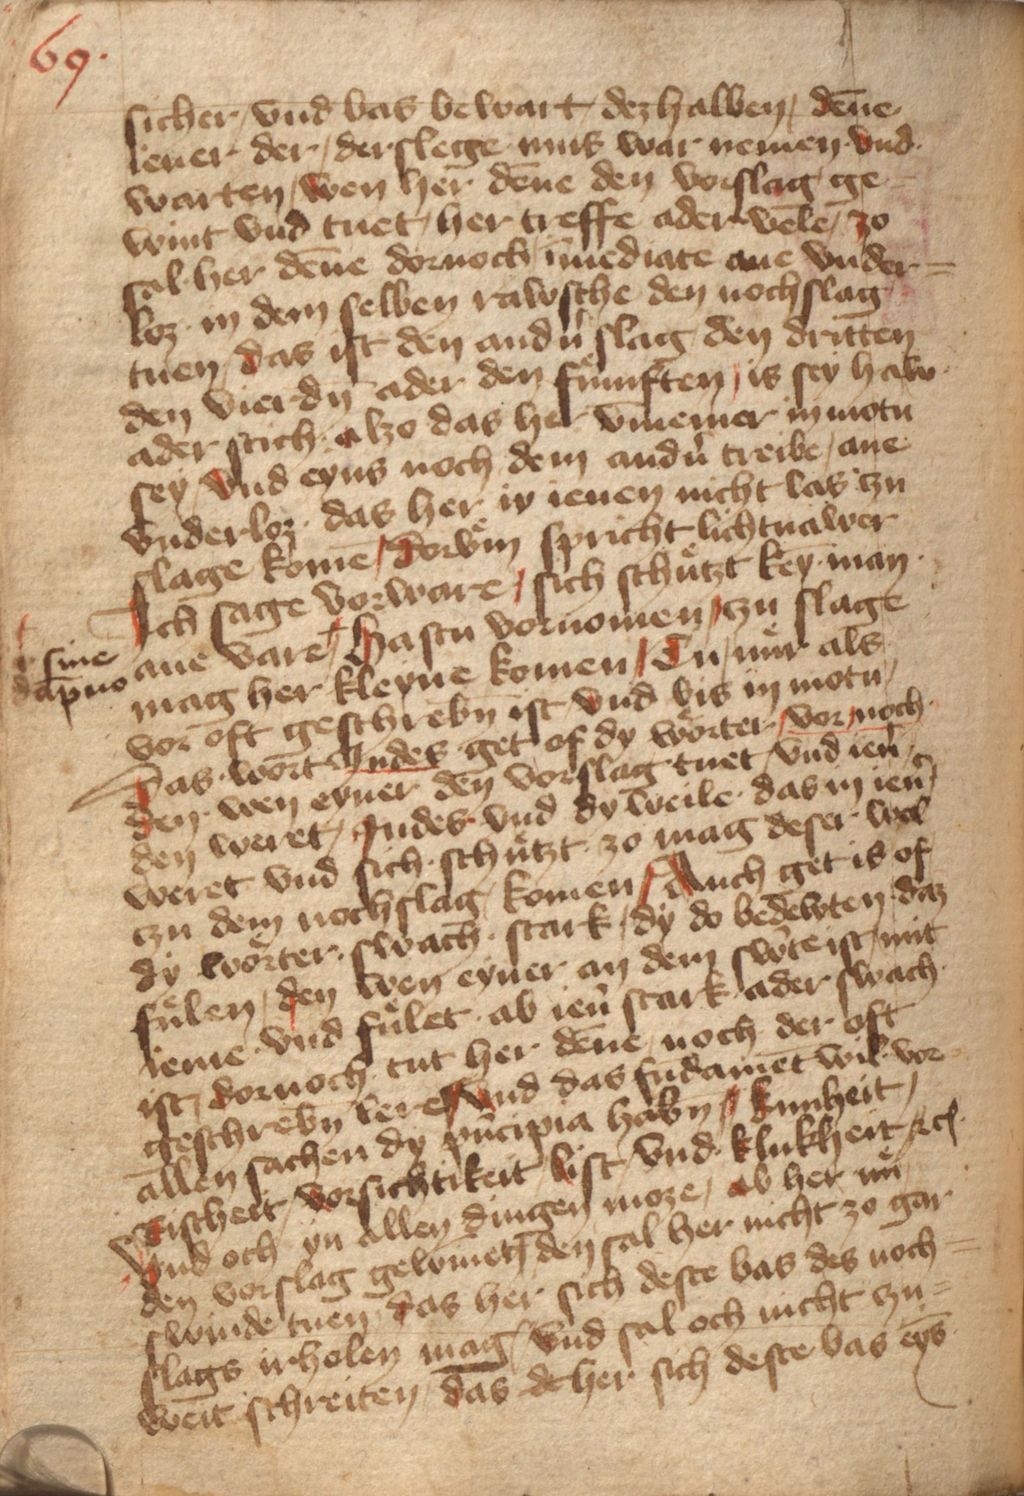 69.
sicher / vnd bas bewart dezhalben / den̄e
iener der / der slege mus war nemen vnd
warten / wen her den̄e den vorslag ge=
wint vnd tuet / her treffe ader vele / zo
sal her den̄e dornoch / īmediate ane vnder=
loz in dem selben rawsche den nochslag
tuen / das ist den andn̄ slag den dritten
den vierdn̄ ader den fünften / is sey haw
ader stich / alzo das her vm̄mer in motu
sey / vnd eyns noch dem andn̄ treibe / ane
vnderloz das her iy ienen nicht las zu
slage kome / Dorvm̄ spricht lichtnawer
Ich sage vorware / sich schützt key man
ane vare / Hastu vornomen / zu slage
sine
dāpno
mag her kleyne komen / Tu / nür als
vor oft geschrebn̄ ist / vnd bis in motu /
Das wort Indes get of dy wörter / vor / noch
den wen eyner den vorslag tuet / vnd ien̄
den weret / Indes vnd dy weile das in ien̄
weret vnd sich schützt zo mag deser wol
czu dem nochslag komen / Auch get is of
dy wörter swach stark / dy do bedewten daz
fülen / den wen eyner an dem sw̄te ist / mit
ieme vnd fület ab ien̄ stark ader swach
ist / dornoch tut her den̄e / noch der oft
geschrebn̄ lere / Vnd das fūdamet wil vor
allen sachen dy p̄ncipia habn̄ / kunheit /
Rischeit / vorsichtikeit / list / vnd klukheit ꝛc̄
Vnd och yn allen dingen moze / ab her nü
den vorslag gewinet / den sal her nicht zo gar
swinde tuen / das her sich deste bas des noch=
slags irholen mag / Vnd sal och nicht zu=
weit schreiten / das her sich deste bas eȳs